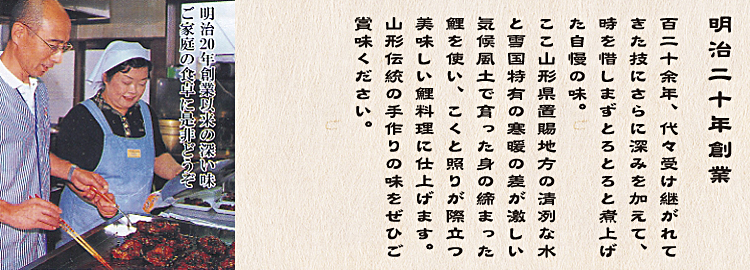 明治二十年創業
百二十余年、代々受け継がれて
きた技にさらに深みを加えて、
時を惜しまずとろとろと煮上げ
た自慢の味。
ここ山形県置賜地方の清冽な水
と雪国特有の寒暖の差が激しい
気候風土で育った身の締まった
鯉を使い、こくと照りが際立つ
美味しい鯉料理に仕上げます。
山形伝統の手作りの味をぜひご
賞味ください。
明治20年創業以来の深い味
ご家庭の食卓に是非どうぞ